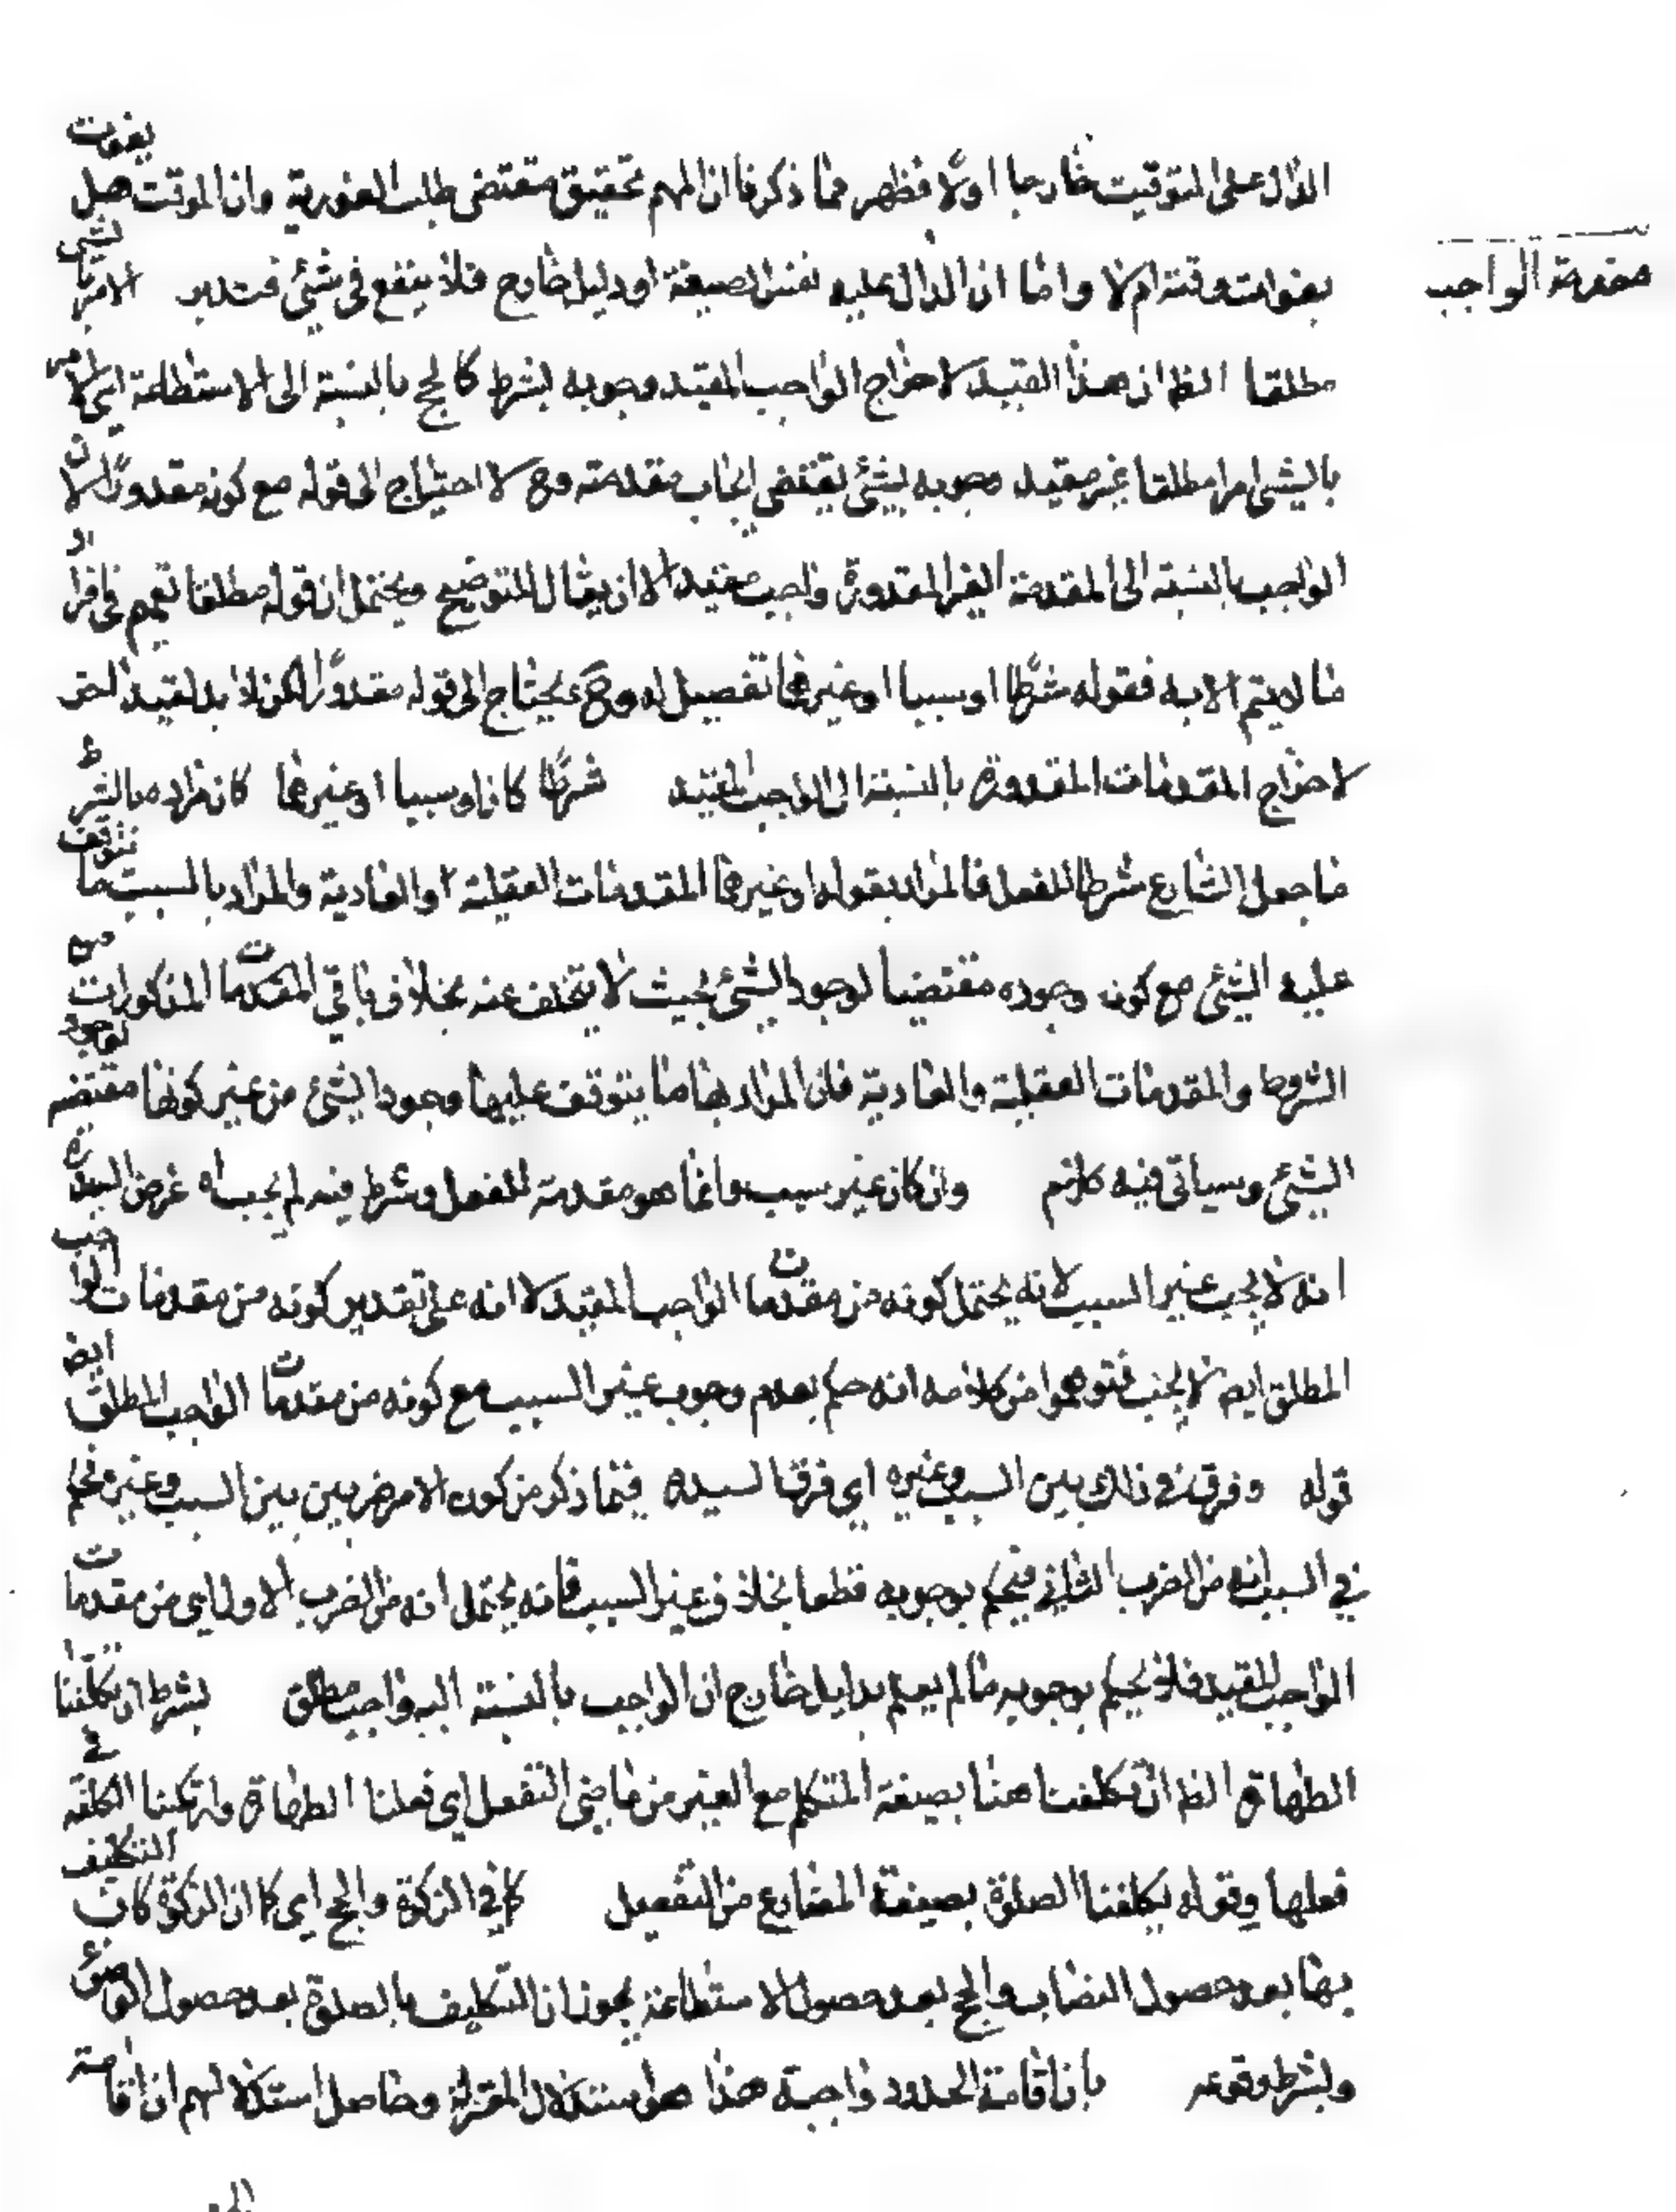 الدال على التوقيت خارجا اولا فظهر مما ذكرنا ان المهم تحقيق مقتضى طلب الفورية وان الموقت هل يفوت
بفوات وقته ام لا واما ان الدال عليه نفس الصيغة او دليل خارج فلا ينفع في شئ فتدبر الامر بالشئ
مقدمة الواجب
مطلقا الظ ان هذا القيد لاخراج الواجب المقيد وجوبه بشرط كالحج بالنسبة الى الاستطاعة اي الامر
بالشئ امرا مطلقا غير مقيد وجوبه بشئ يقتضي ايجاب مقدمته وح لا احتياج الى قوله مع كونه مقدورا لان
الواجب بالنسبة الى المقدمة الغير المقدورة واجب مقيد الا ان يقال للتوضيح ويحتمل ان قوله مطلقا تعميم في افراد
ما لا يتم الا به فقوله شرطا او سببا او غيرهما تفصيل له وح يحتاج الى قوله مقدورا لكن لا بد لقيد اخر
لاخراج المقدمات المقدورة بالنسبة الى الواجب المقيد شرطا كان او سببا او غيرهما كان مراده بالشرط
ما جعل الشارع شرطا للفعل فالمراد بقوله او غيرهما المقدمات العقلية او العادية والمراد بالسبب ما يتوقف
عليه الشئ مع كونه وجوده مقتضيا لوجود الشئ بحيث لا يتخلف عنه بخلاف باقي المقدمات المذكورات من
الشروط والمقدمات العقلية والعادية فان المراد بها ما يتوقف عليها وجود الشئ من غير كونها مقتضية لوجود
الشئ وسياتي فيه كلام وان كان غير سبب وانما هو مقدمة للفعل وشرط فيه لم يجب اه غرض السيد ره
انه لا يجب غير السبب لانه يحتمل كونه من مقدمات الواجب المقيد لا انه على تقدير كونه من مقدمات الواجب
المطلق ايضا لا يجب فتوهموا من كلامه انه حكم بعدم وجوب غير السبب مع كونه من مقدمات الواجب المطلق ايض
قوله وفرق في ذلك بين السبب وغيره اي فرق السيد ره فيما ذكر من كون الامر ضربين بين السبب وغيره فحكم
في السبب انه من الضرب الثاني فيحكم بوجوبه قطعا بخلاف غير السبب فانه يحتمل انه من الضرب الاول اي من مقدمات
الواجب المقيد فلا يحكم بوجوبه ما لم يعلم بدليل خارج ان الواجب بالنسبة اليه واجب مطلق بشرط ان تكلفنا
الطهارة الظ ان تكلفنا هنا بصيغة المتكلم مع الغير من ماضي التفعل اي فعلنا الطهارة وارتكبنا الكلفة في
فعلها وقوله يكلفنا الصلوة بصيغة المضارع من التفعيل كما في الزكوة والحج اي كما ان الزكوة كان التكليف
بها بعد حصول النصاب والحج بعد حصول الاستطاعة يجوز ان التكليف بالصلوة بعد حصول الوضوء
وبشرط وقوعه بان اقامة الحدود واجبة هذا هو استدلال المعتزلة وحاصل استدلالهم ان اقامة